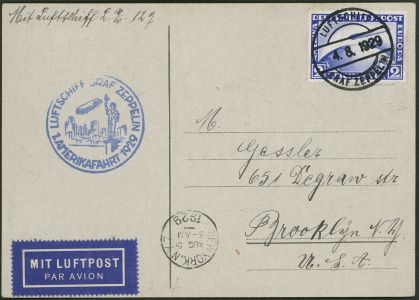 Mit Luftschiff L.Z. 127
LUFTSCHIFF GRAF ZEPPELIN
1. AMERIKAFAHRT 1929
DEUTSCHE LUFTPOST EUROPA
2 2
LUFTSCHIFF
4.8.1929
GRAF ZEPPELIN
M.
Gessler
651 Degraw str
Brooklyn N.Y.
U.S.A.
NEW YORK, N.Y.
AUG 5
3-AM
1929
MIT LUFTPOST
PAR AVION